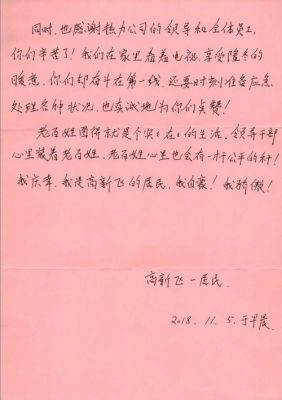 同时,也感谢热力公司的领导和全体员工,
你们辛苦了!我们在家里看着电视,享受隆冬的
暖意,你们却奋斗在第一线,还要时刻准备应急
处理各种状况,也真诚地为你们点赞!
老百姓图得就是个实々在々的生活,领导干部
心里装着老百姓,老百姓心里也会有一杆公平的秤!
我庆幸,我是高新飞的居民,我自豪!我骄傲!
高新飞一居民.
2018. 11. 5. 于早晨